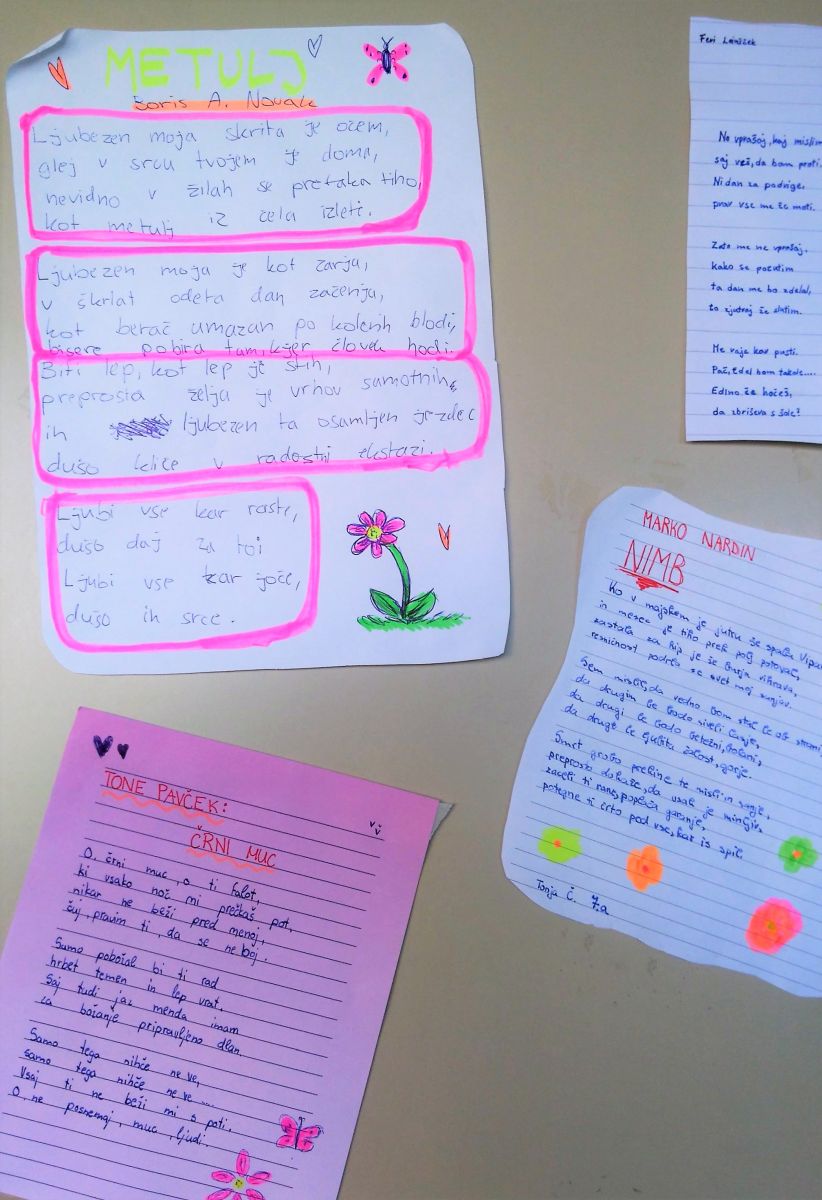 METULJ
Boris A. Novak
Ljubezen moja skrita je očem,
glej v srcu tvojem je doma,
nevidno v žilah se pretaka tiho,
kot metulj iz cela izleti.
Ljubezen moja je kot zarja,
v škrlat odeta dan začenja,
kot berač umazan po kolenih blodi,
bisere pobira tam, kjer človek hodi.
Biti lep, kot lep je stih,
preprosta želja je vrhov samotnih,
in ljubezen ta osamljen jezdec
dušo kliče v radostni ekstazi.
Ljubi vse kar raste,
dušo daj za to!
Ljubi vse kar joče,
dušo in srce.
Feri Lainšček
Ne vprašaj, kaj mislim
saj veš, da bom proti.
Ni dan za podvige,
prav vse me že moti.
Zato me ne vprašaj,
kako se počutim
ta dan me bo zdelal,
to zjutraj že slutim.
Me raje kar pusti.
Pač, zdel bom takole....
Edino če hočeš,
da zbriševa s šole?
MARKO NARDIN
NIMB
Ko v majskem je jutru še spala Vipa
in mesec je tiho prek polj potoval,
zastala za hip je še burja vihrava,
resničnost podrla se svet moj sanjav.
Sem mislil, da vedno bom stal le ob strani,
da drugim le bodo siveli lasje,
da drugi le bodo betežni, bolani,
da druge le ljubita žalost, gorje.
Smrt grobo prekine te misli in sanje,
preprosto dokaže, da vsak je minljiv,
zaceli ti rane, poplača garanje,
potegne ti črto pod vse, kar is spil.
Tonja Č. 7.a
TONE PAVČEK:
ČRNI MUC
O, črni muc, o ti falot,
ki vsako noč mi prečkaš pot,
nikar ne beži pred menoj,
čuj, pravim ti, da se ne boj.
Samo pobožal bi ti rad
hrbet temen in lep vrat,
saj tudi jaz menda imam
za božanje pripravljeno dlan.
Samo tega nihče ne ve,
samo tega nihče ne ve ...
Vsaj ti ne beži mi s poti.
O, ne posnemaj, muc, ljudi.